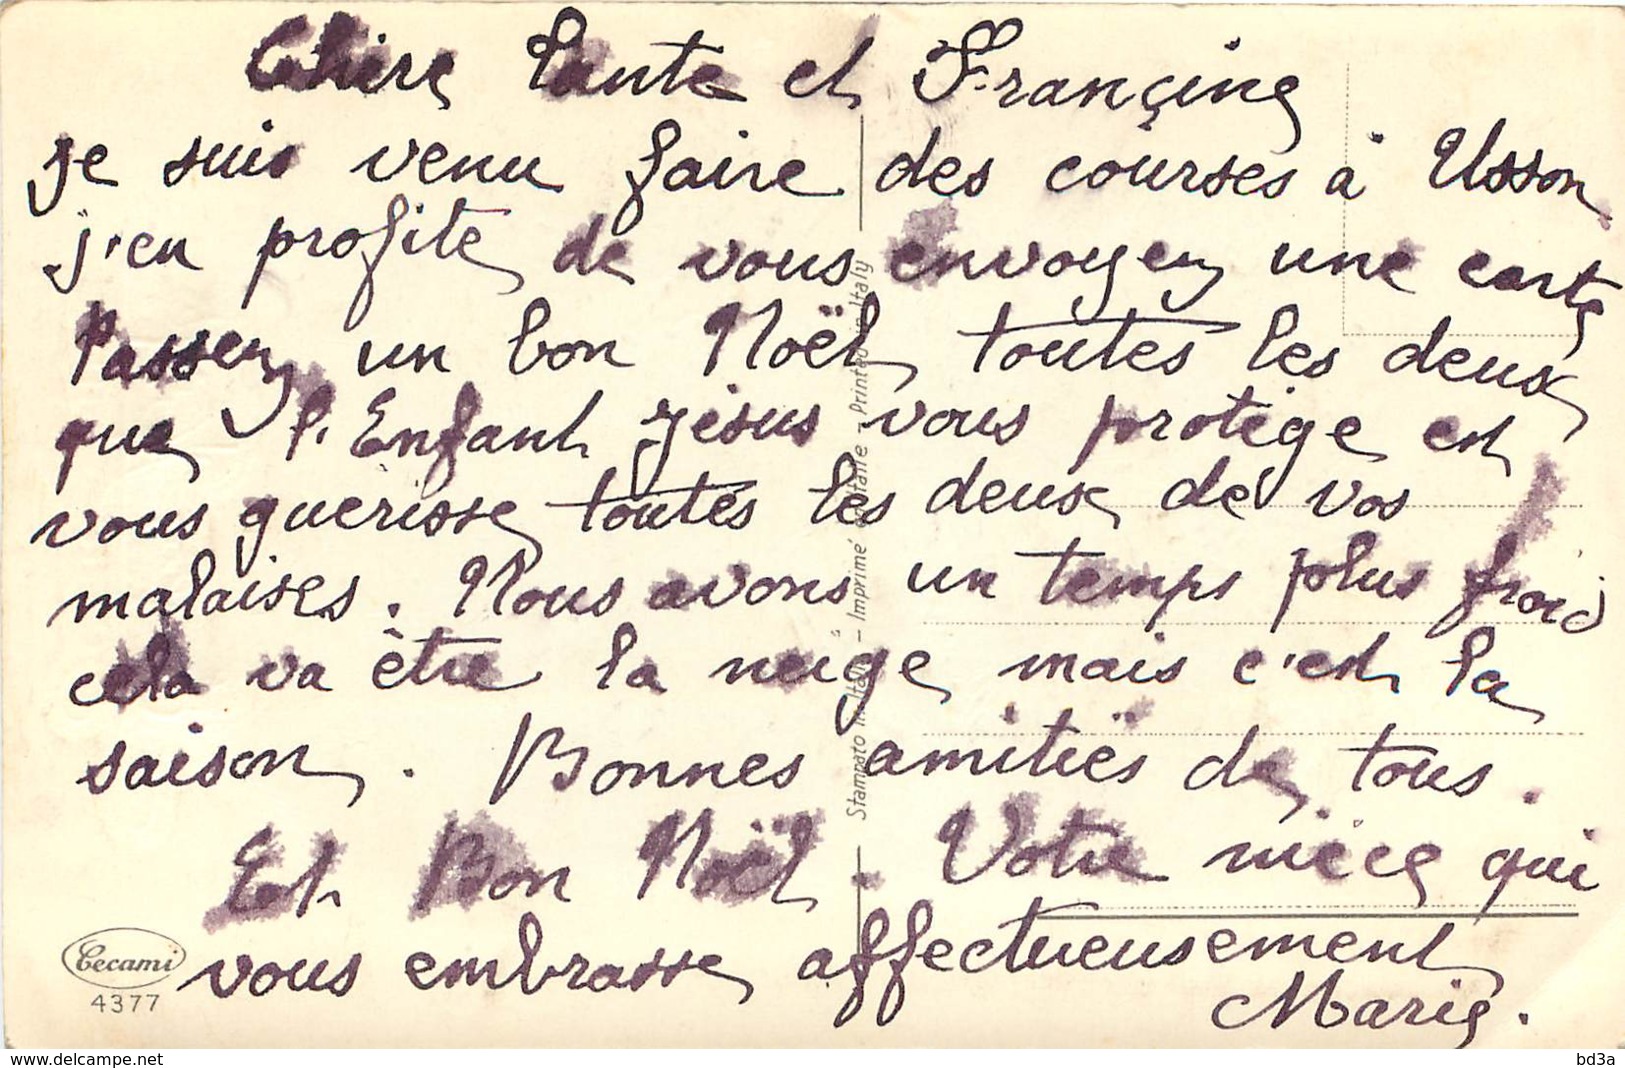 Chère Tante et Françine
je suis venu faire des courses à Usson
j'en profite de vous envoyer une carte
Passer un bon Noël toutes les deux
que l'Enfant Jésus vous protège et
vous guerisse toutes les deux de vos
malaises. Nous avons un temps plus froid
cela va être la neige mais c'est la
saison. Bonnes amitiés de tous.
Et Bon Noël. Votre nièce qui
vous embrasse affectueusement
Marie.
Cecami
4377
Stampato in Italia - Imprimé en Italie - Printed in Italy
www.delcampe.net
bd3a